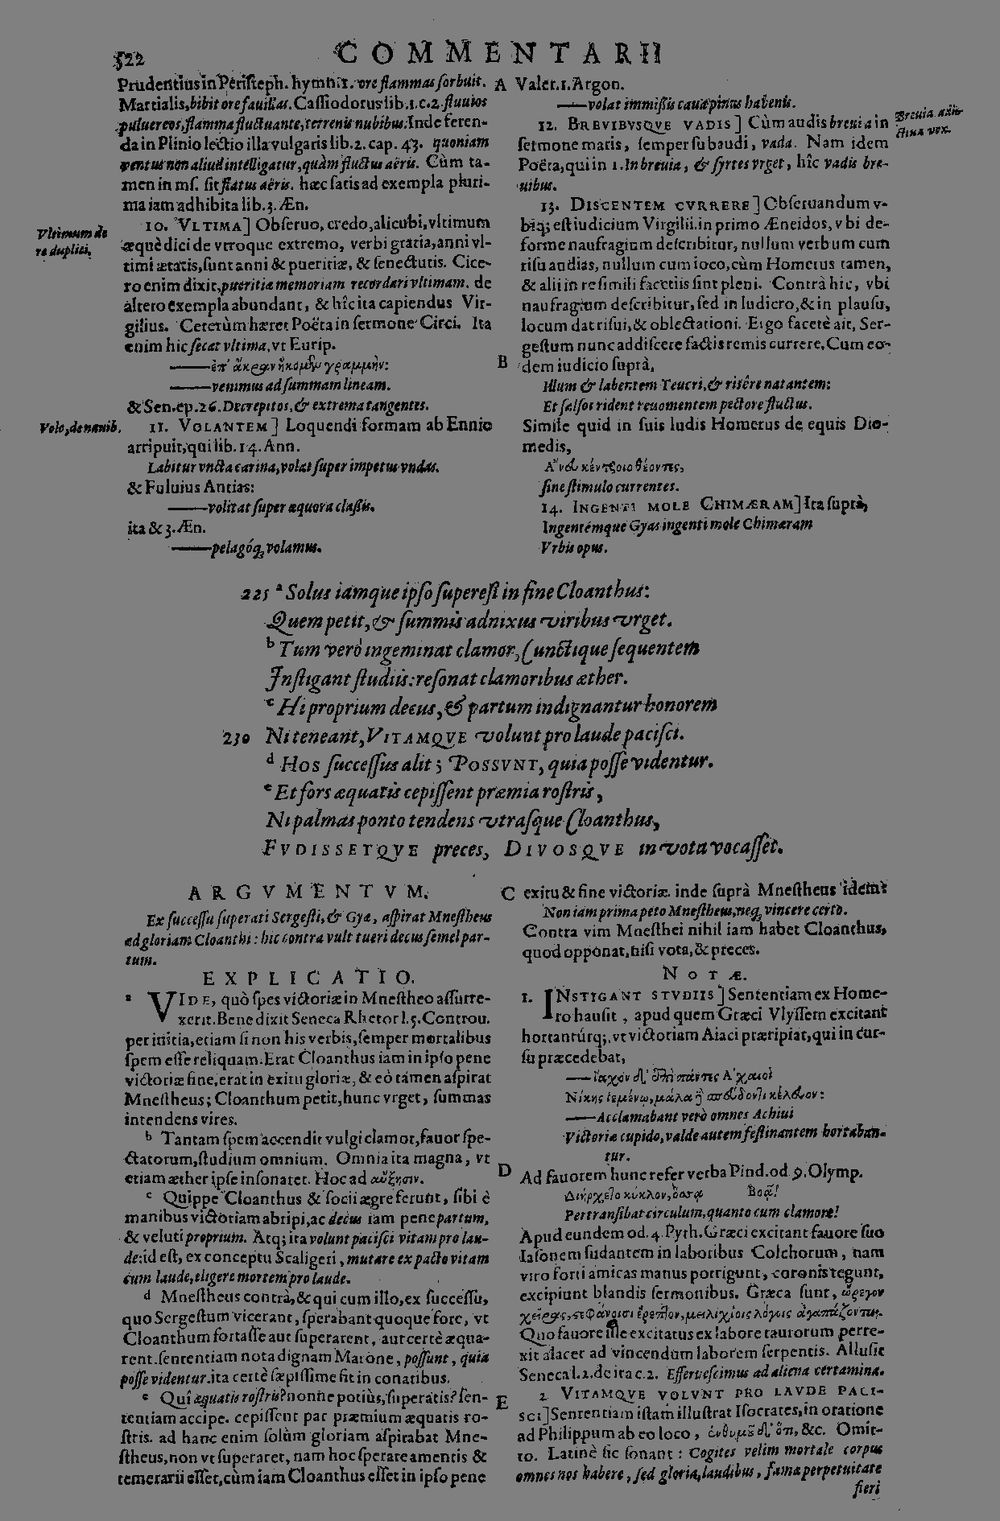 522
COMMENTARII
Prudentius in Peristeph. hymn. 1. ore flammas sorbuit.
Martialis, bibit ore fauillas. Cassiodorus lib. 1. c. 2. fluuios
puluereos, flamma fluctuante, terrenis nubibus. Inde feren-
da in Plinio lectio illa vulgaris lib. 2. cap. 43. quoniam
ventus non aliud intelligatur, quàm fluctus aëris. Cùm ta-
men in ms. sit flatus aëris. hæc satis ad exempla pluri-
ma iam adhibita lib. 3. Æn.
Vltimum de
re duplici,
10. VLTIMA] Obseruo, credo, alicubi, vltimum
æquè dici de vtroque extremo, verbi gratia, anni vl-
timi ætatis, sunt anni & pueritiæ, & senectutis. Cice-
ro enim dixit, pueritiæ memoriam recordari vltimam. de
altero exempla abundant, & hîc ita capiendus Vir-
gilius. Ceterùm hæret Poëta in sermone Circi. Ita
enim hic secat vltima, vt Eurip.
——ἐπ' ἄκραν ἥκομῳ γραμμήν:
——venimus ad summam lineam.
& Sen. ep. 26. Decrepitos, & extrema tangentes.
Volo, de nauib.
11. VOLANTEM] Loquendi formam ab Ennio
arripuit, qui lib. 14. Ann.
Labitur vncta carina, volat super impetus vndas.
& Fuluius Antias:
——volitat super æquora classis.
ita & 3. Æn.
——pelagóq; volamus.
A
Valer. 1. Argon.
——volat immissis caua pinus habenis.
Breuia adie-
ctiua vox.
12. BREVIBVSQVE VADIS] Cùm audis breuia in
sermone maris, semper subaudi, vada. Nam idem
Poëta, qui in 1. In breuia, & syrtes vrget, hîc vadis bre-
uibus.
13. DISCENTEM CVRRERE] Obseruandum v-
biq; est iudicium Virgilii. in primo Æneidos, vbi de-
forme naufragium describitur, nullum verbum cum
risu audias, nullum cum ioco, cùm Homerus tamen,
& alii in re simili facetiis sint pleni. Contrà hic, vbi
naufragium describitur, sed in ludicro, & in plausu,
locum dat risui, & oblectationi. Ergo facetè ait, Ser-
gestum nunc addiscere factis remis currere, Cum eo-
B
dem iudicio suprà,
Illum & labentem Teucri, & risêre natantem:
Et salsos rident reuomentem pectore fluctus.
Simile quid in suis ludis Homerus de equis Dio-
medis,
Ἄνευ κέντροιο θέοντες,
sine stimulo currentes.
14. INGENTI MOLE CHIMÆRAM] Ita suprà,
Ingentémque Gyas ingenti mole Chimæram
Vrbis opus.
225 a Solus iamque ipso superest in fine Cloanthus:
Quem petit, & summis adnixus viribus vrget.
b Tum verò ingeminat clamor, Cunctique sequentem
Instigant studiis: resonat clamoribus æther.
c Hi proprium decus, & partum indignantur honorem
230 Ni teneant, VITAMQVE volunt pro laude pacisci.
d Hos successus alit; POSSVNT, quia posse videntur.
e Et fors æquatis cepissent præmia rostris,
Ni palmas ponto tendens vtrasque Cloanthus,
FVDISSETQVE preces, DIVOSQVE in vota vocasset.
ARGVMENTVM.
Ex successu superati Sergesti, & Gyæ, aspirat Mnestheus
ad gloriam Cloanthi: hic contra vult tueri decus semel par-
tum.
EXPLICATIO.
a VIDE, quò spes victoriæ in Mnestheo assurre-
xerit. Bene dixit Seneca Rhetor l. 5. Controu.
per initia, etiam si non his verbis, semper mortalibus
spem esse reliquam. Erat Cloanthus iam in ipso pene
victoriæ fine, erat in exitu gloriæ, & eò tamen aspirat
Mnestheus; Cloanthum petit, hunc vrget, summas
intendens vires.
b Tantam spem accendit vulgi clamor, fauor spe-
ctatorum, studium omnium. Omnia ita magna, vt
etiam æther ipse insonaret. Hoc ad αὔξησιν.
c Quippe Cloanthus & socii ægre ferunt, sibi è
manibus victoriam abripi, ac decus iam pene partum,
& veluti proprium. Atq; ita volunt pacisci vitam pro lau-
de: id est, ex conceptu Scaligeri, mutare ex pacto vitam
cum laude, eligere mortem pro laude.
d Mnestheus contrà, & qui cum illo, ex successu,
quo Sergestum vicerant, sperabant quoque fore, vt
Cloanthum fortasse aut superarent, aut certè æqua-
rent. sententiam nota dignam Marone, possunt, quia
posse videntur. ita certè sæpissime fit in conatibus.
e Quî æquatis rostris? nonne potiùs, superatis? sen-
tentiam accipe. cepissent par præmium æquatis ro-
stris. ad hanc enim solùm gloriam aspirabat Mne-
stheus, non vt superaret, nam hoc sperare amentis &
temerarii esset, cùm iam Cloanthus esset in ipso pene
C
exitu & fine victoriæ. inde suprà Mnestheus idem:
Non iam prima peto Mnestheus, neq; vincere certo.
Contra vim Mnesthei nihil iam habet Cloanthus,
quod opponat, nisi vota, & preces.
NOTÆ.
1. INSTIGANT STVDIIS] Sententiam ex Home-
ro hausit, apud quem Græci Vlyssem excitant
hortantúrq;, vt victoriam Aiaci præripiat, qui in cur-
su præcedebat,
——ἴαχον δ' ἐπὶ πάντες Ἀχαιοὶ
Νίκης ἱεμένῳ, μάλα δὲ σπεύδοντι κέλευον:
——Acclamabant verò omnes Achiui
Victoriæ cupido, valde autem festinantem hortaban-
tur.
D
Ad fauorem hunc refer verba Pind. od. 9. Olymp.
Διήρχετο κύκλον, ὅσσᾳ Βοᾷ!
Pertransibat circulum, quanto cum clamore!
Apud eundem od. 4. Pyth. Græci excitant fauore suo
Iasonem sudantem in laboribus Colchorum, nam
viro forti amicas manus porrigunt, coronis tegunt,
excipiunt blandis sermonibus. Græca sunt, ὤρεγον
χεῖρας, στεφάνοισι ἔρεπτον, μειλιχίοις λόγοις ἀγαπάζοντο.
Quo fauore ille excitatus ex labore taurorum perre-
xit alacer ad vincendum laborem serpentis. Allusit
Seneca l. 2. de ira c. 2. Efferuescimus ad aliena certamina.
2. VITAMQVE VOLVNT PRO LAVDE PACI-
E
SCI] Sententiam istam illustrat Isocrates, in oratione
ad Philippum ab eo loco, ἐνθυμοῦ δ' ὅτι, &c. Omit-
to. Latinè sic sonant: Cogites velim mortale corpus
omnes nos habere, sed gloria, laudibus, fama perpetuitate
fieri